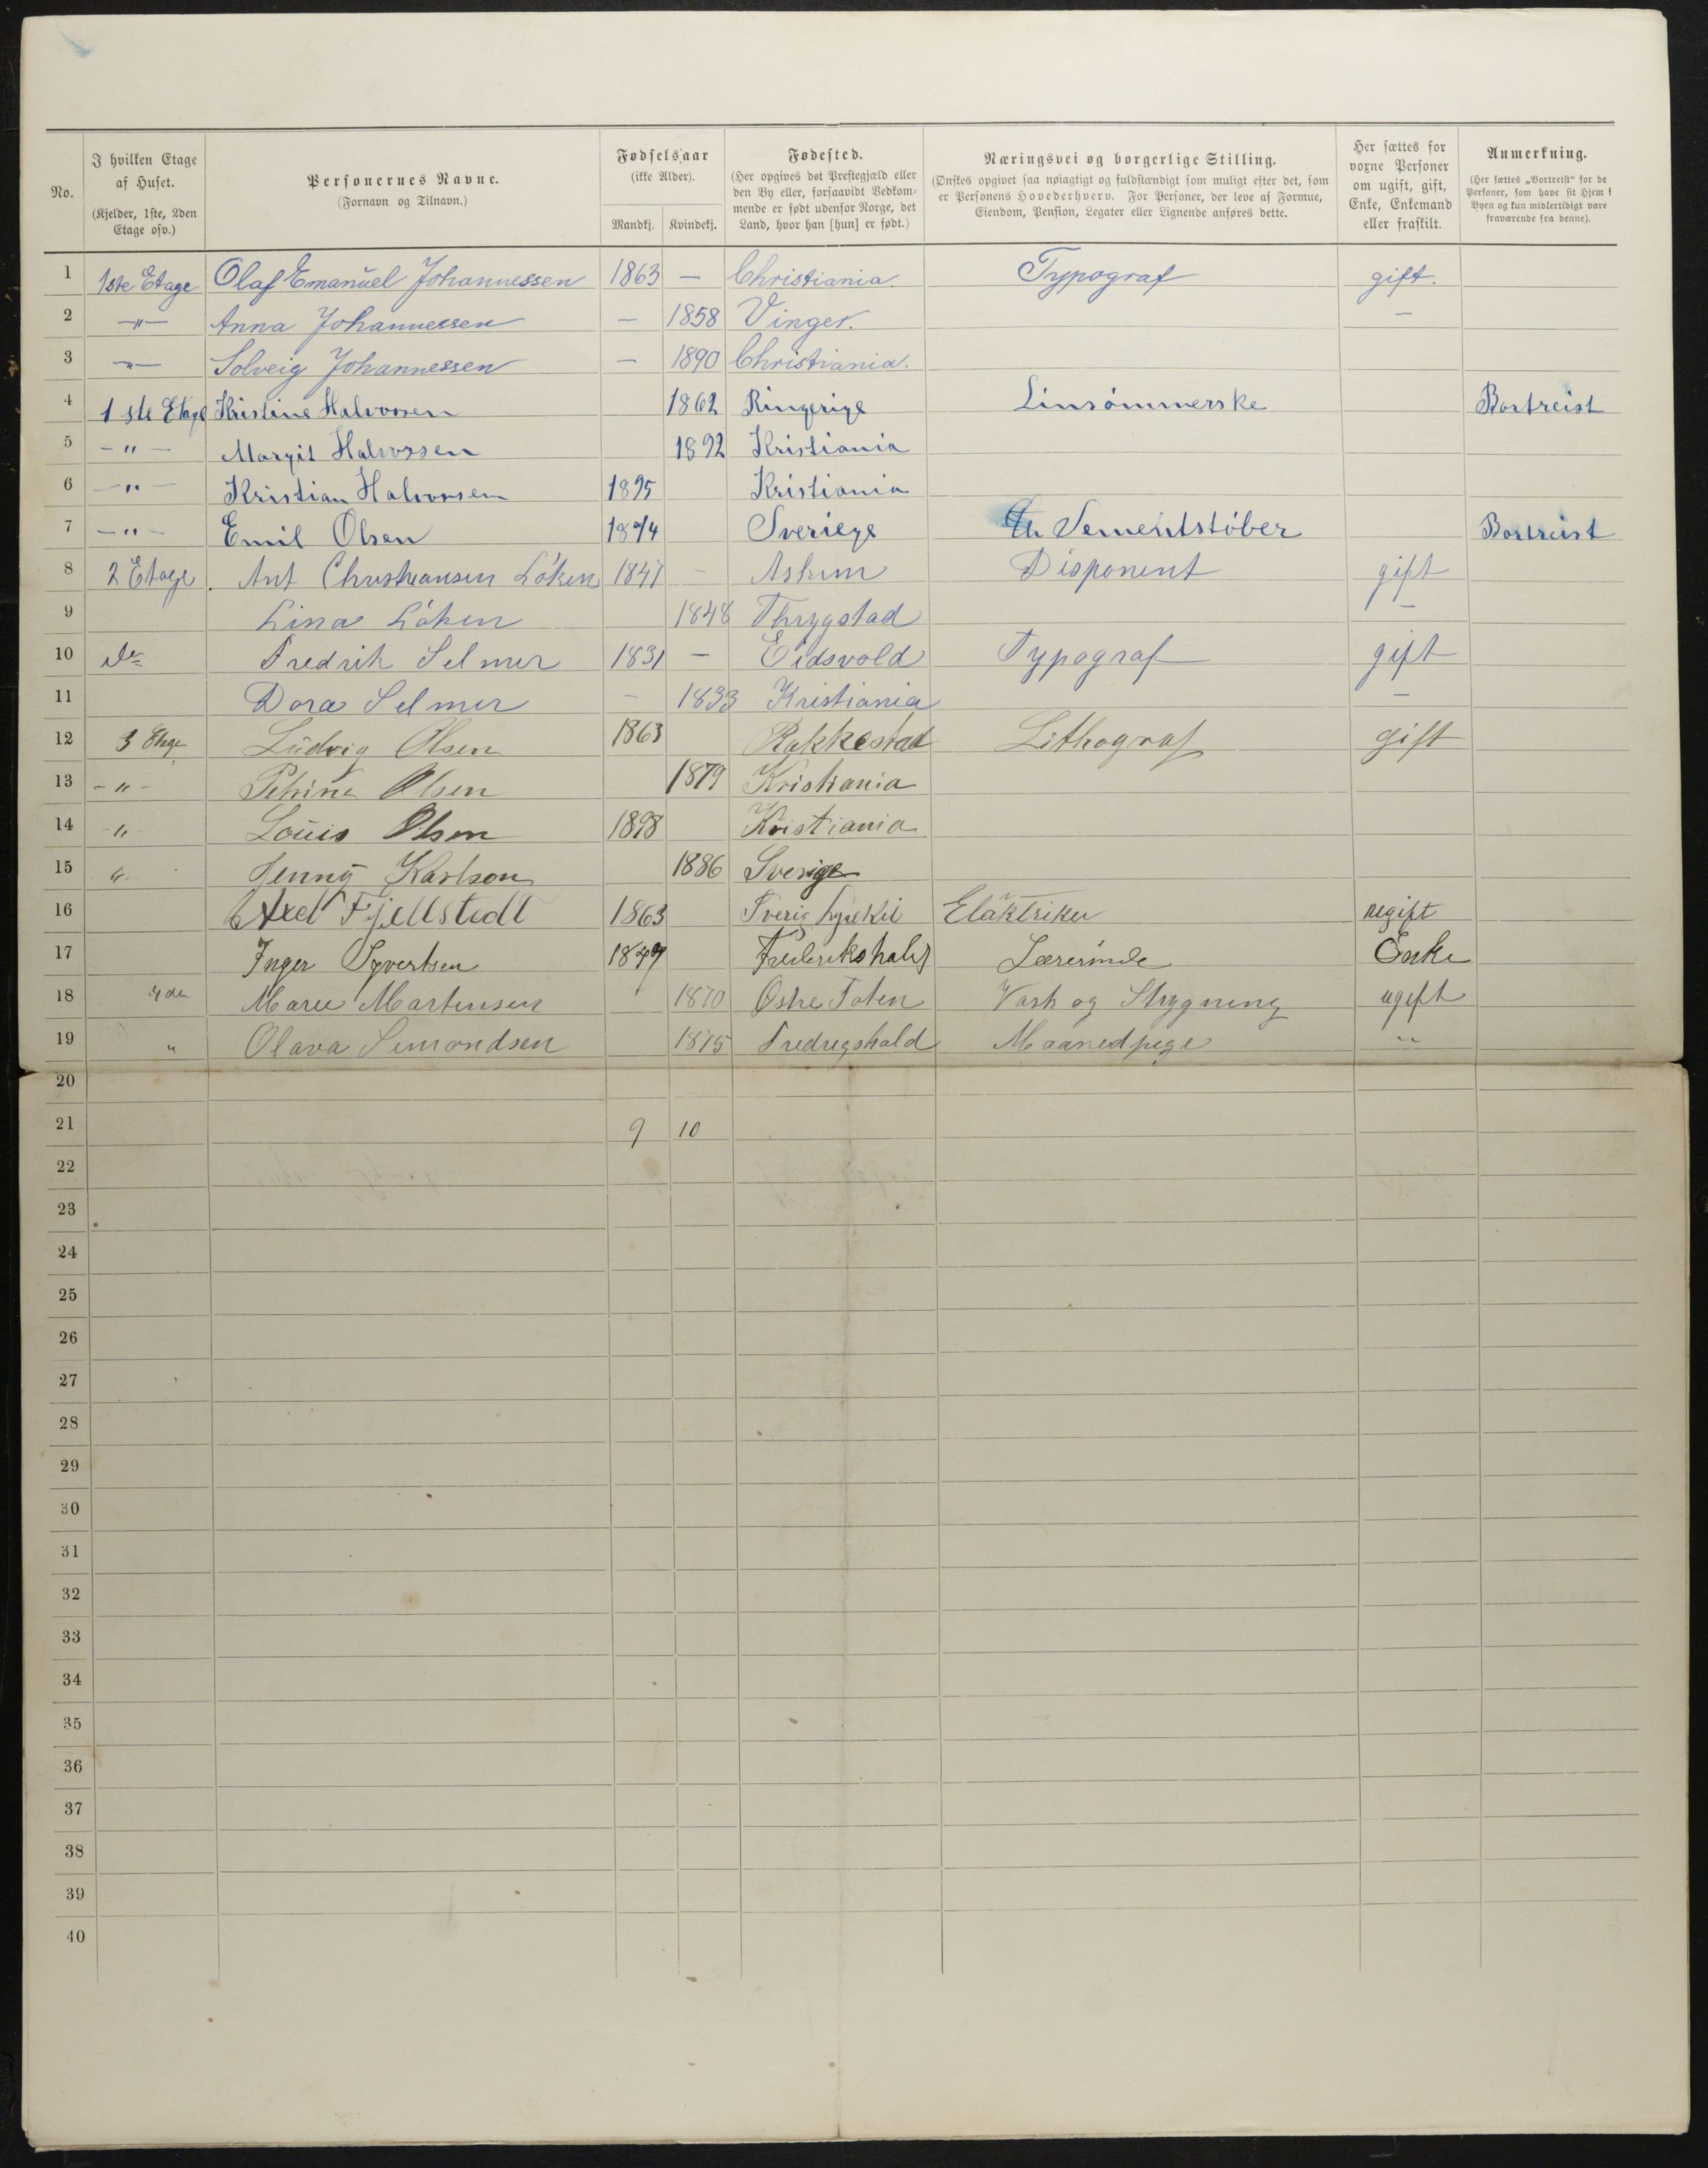 No. | I hvilken Etage af Huset. (Kjelder, 1ste, 2den Etage osv.) | Personernes Navne. (Fornavn og Tilnavn.) | Fødselsaar (ikke Alder). Mandkj. | Kvindekj. | Fødested. (Her opgives det Prestegjæld eller den By eller, forsaavidt Vedkommende er født udenfor Norge, det Land, hvor han [hun] er født.) | Næringsvei og borgerlige Stilling. (Ønskes opgivet saa nøiagtigt og fuldstændigt som muligt efter det, som er Personens Hovederhverv. For Personer, der leve af Formue, Eiendom, Pension, Legater eller Lignende anføres dette.) | Her sættes for voxne Personer om ugift, gift, Enke, Enkemand eller fraskilt. | Anmerkning. (Her sættes „Bortreist“ for de Personer, som have sit Hjem i Byen og kun midlertidigt vare fraværende fra denne).
1 | 1ste Etage | Olaf Emanuel Johannessen | 1863 | — | Christiania. | Typograf | gift.
2 | —"— | Anna Johannessen | — | 1858 | Vinger. | | —
3 | —"— | Solveig Johannessen | — | 1890 | Christiania.
4 | 1 ste Etage | Kristine Halvorsen | | 1862 | Ringerige | Linsömmerske | | Bortreist
5 | —"— | Margit Halvorsen | | 1892 | Kristiania
6 | —"— | Kristian Halvorsen | 1895 | | Kristiania
7 | —"— | Emil Olsen | 1874 | | Sveriege | Sementstöber | | Bortreist
8 | 2 Etage. | Ant Christiansen Löken | 1847 | — | Askim | Disponent | gift
9 | | Lina Löken | | 1848 | Thrygstad | | —
10 | Do | Fredrik Selmer | 1831 | — | Eidsvold | Typograf | gift
11 | | Dora Selmer | — | 1833 | Kristiania | | —
12 | 3 Etage | Ludvig Olsen | 1863 | | Rakkestad | Lithograf | gift
13 | —"— | Petrine Olsen | | 1879 | Kristiania
14 | " | Louis Olsen | 1898 | | Kristiania
15 | " | Jenny Karlson | | 1886 | Sverige
16 | | Axel Fjellstedt | 1863 | | Sverig | Eläktriker | ugift
17 | | Inger Syvertsen | 1849 | | Frederikshald | Lærerinde | Enke
18 | 4 de | Maree Martensen | | 1870 | Østre Toten | Vask og Strygning | ugift
19 | " | Olava Simondsen | | 1875 | Fredrigshald | Maanedpige | "
20
21 | | | 9 | 10
22
23
24
25
26
27
28
29
30
31
32
33
34
35
36
37
38
39
40